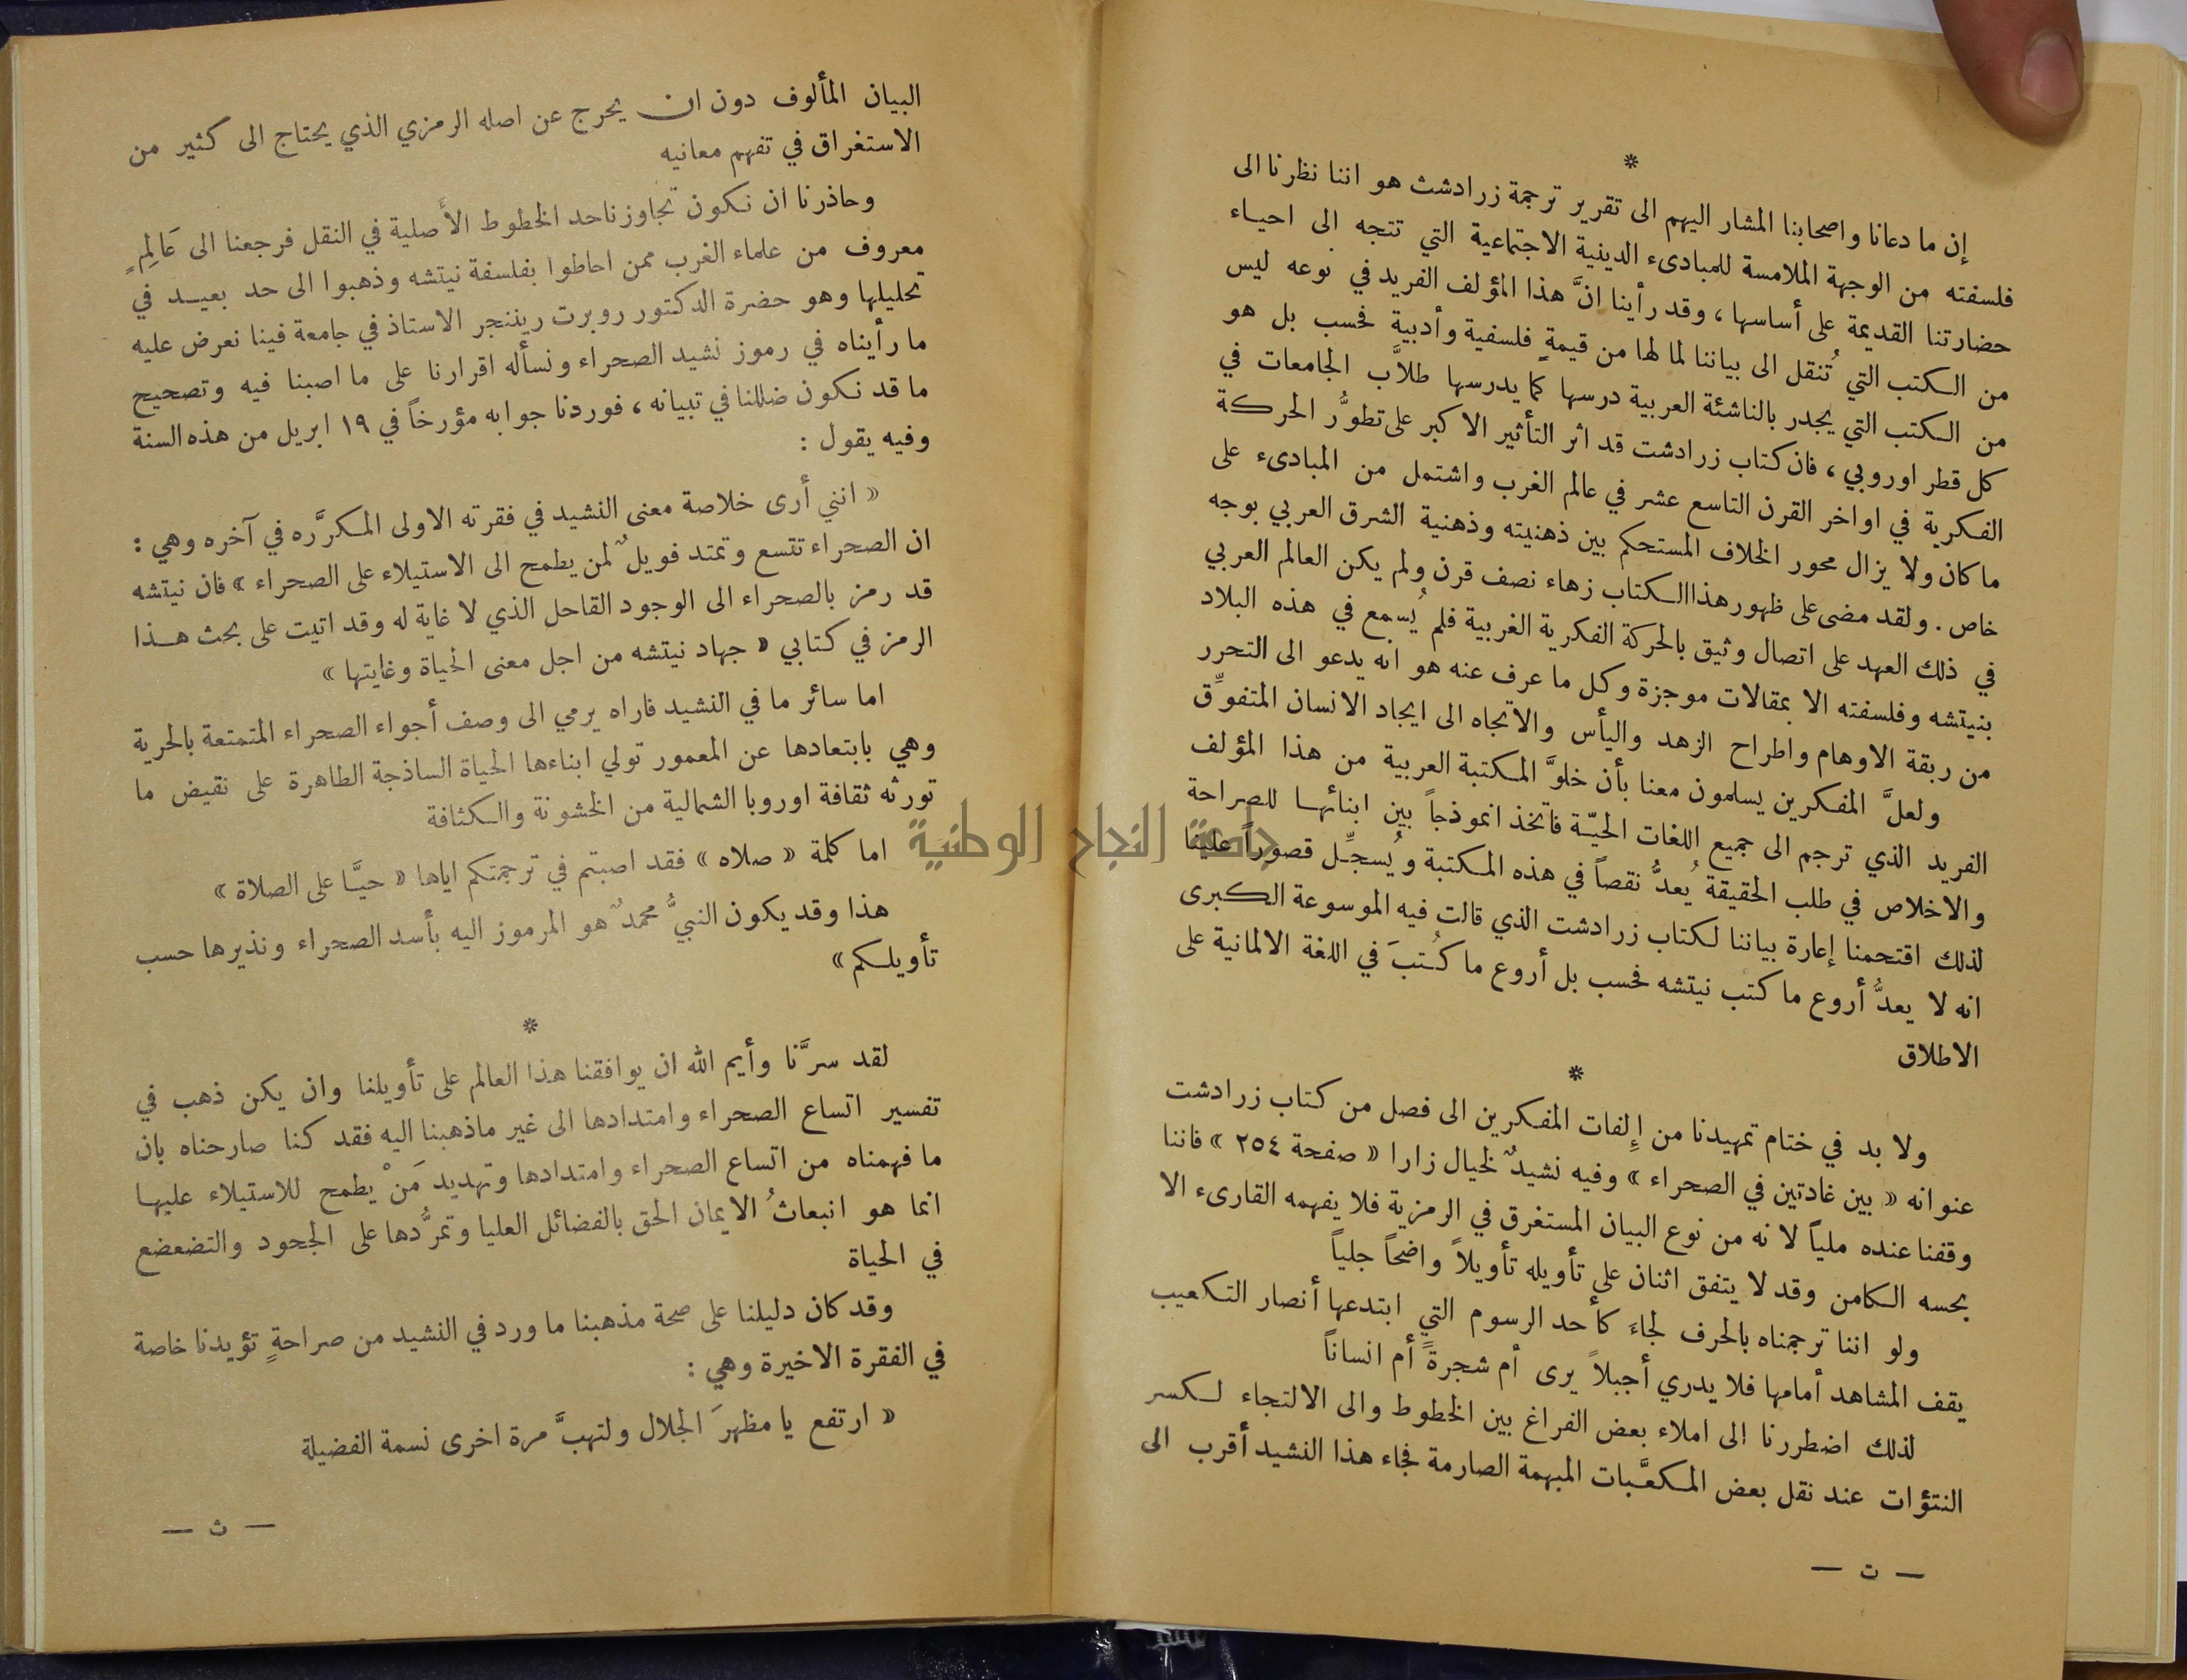 *
إن ما دعانا واصحابنا المشار اليهم الى تقرير ترجمة زرادشت هو اننا نظرنا الى
فلسفته من الوجهة الملامسة للمبادىء الدينية الاجتماعية التي تتجه الى احياء
حضارتنا القديمة على أساسها ، وقد رأينا انَّ هذا المؤلف الفريد في نوعه ليس
من الكتب التي تُنقل الى بياننا لما لها من قيمةٍ فلسفية وأدبية فحسب بل هو
من الكتب التي يجدر بالناشئة العربية درسها كما يدرسها طلاَّب الجامعات في
كل قطر اوروبي ، فان كتاب زرادشت قد اثر التأثير الاكبر على تطوُّر الحركة
الفكرية في اواخر القرن التاسع عشر في عالم الغرب واشتمل من المبادىء على
ما كان ولا يزال محور الخلاف المستحكم بين ذهنيته وذهنية الشرق العربي بوجه
خاص . ولقد مضى على ظهور هذا الكتاب زهاء نصف قرن ولم يكن العالم العربي
في ذلك العهد على اتصال وثيق بالحركة الفكرية الغربية فلم يُسمع في هذه البلاد
بنيتشه وفلسفته الا بمقالات موجزة وكل ما عرف عنه هو انه يدعو الى التحرر
من ربقة الاوهام واطراح الزهد واليأس والاتجاه الى ايجاد الانسان المتفوِّق
ولعلَّ المفكرين يسلمون معنا بأن خلوَّ المكتبة العربية من هذا المؤلف
الفريد الذي ترجم الى جميع اللغات الحيّة فاتخذ انموذجاً بين ابنائها للصراحة
والاخلاص في طلب الحقيقة يُعدُّ نقصاً في هذه المكتبة ويُسجِّل قصوراً علينا
لذلك اقتحمنا إعارة بياننا لكتاب زرادشت الذي قالت فيه الموسوعة الكبرى
انه لا يعدُّ أروع ما كتب نيتشه فحسب بل أروع ما كُتبَ في اللغة الالمانية على
الاطلاق
*
ولا بد في ختام تمهيدنا من إلفات المفكرين الى فصل من كتاب زرادشت
عنوانه « بين غادتين في الصحراء » وفيه نشيدٌ لخيال زارا « صفحة ٢٥٤ » فاننا
وقفنا عنده ملياً لانه من نوع البيان المستغرق في الرمزية فلا يفهمه القارىء الا
بحسه الكامن وقد لا يتفق اثنان على تأويله تأويلاً واضحاً جلياً
ولو اننا ترجمناه بالحرف لجاءَ كأحد الرسوم التي ابتدعها أنصار التكعيب
يقف المشاهد أمامها فلا يدري أجبلاً يرى أم شجرةً أم انساناً
لذلك اضطررنا الى املاء بعض الفراغ بين الخطوط والى الالتجاء لكسر
النتؤات عند نقل بعض المكعَّبات المبهمة الصارمة فجاء هذا النشيد أقرب الى
— ت —
البيان المألوف دون ان يخرج عن اصله الرمزي الذي يحتاج الى كثير من
الاستغراق في تفهم معانيه
وحاذرنا ان نكون تجاوزنا حد الخطوط الأَصلية في النقل فرجعنا الى عَالِمٍ
معروف من علماء الغرب ممن احاطوا بفلسفة نيتشه وذهبوا الى حد بعيد في
تحليلها وهو حضرة الدكتور روبرت ريننجر الاستاذ في جامعة فينا نعرض عليه
ما رأيناه في رموز نشيد الصحراء ونسأله اقرارنا على ما اصبنا فيه وتصحيح
ما قد نكون ضللنا في تبيانه ، فوردنا جوابه مؤرخاً في ١٩ ابريل من هذه السنة
وفيه يقول :
« انني أرى خلاصة معنى النشيد في فقرته الاولى المكررَّه في آخره وهي :
ان الصحراء تتسع وتمتد فويلٌ لمن يطمح الى الاستيلاء على الصحراء » فان نيتشه
قد رمز بالصحراء الى الوجود القاحل الذي لا غاية له وقد اتيت على بحث هذا
الرمز في كتابي « جهاد نيتشه من اجل معنى الحياة وغايتها »
اما سائر ما في النشيد فاراه يرمي الى وصف أجواء الصحراء المتمتعة بالحرية
وهي بابتعادها عن المعمور تولي ابناءها الحياة الساذجة الطاهرة على نقيض ما
تورثه ثقافة اوروبا الشمالية من الخشونة والكثافة
اما كلمة « صلاه » فقد اصبتم في ترجمتكم اياها « حيَّا على الصلاة »
هذا وقد يكون النبيُّ محمدٌ هو المرموز اليه بأسد الصحراء ونذيرها حسب
تأويلكم »
*
لقد سرَّنا وأيم الله ان يوافقنا هذا العالم على تأويلنا وان يكن ذهب في
تفسير اتساع الصحراء وامتدادها الى غير ماذهبنا اليه فقد كنا صارحناه بان
ما فهمناه من اتساع الصحراء وامتدادها وتهديد مَنْ يطمح للاستيلاء عليها
انما هو انبعاثُ الايمان الحق بالفضائل العليا وتمرُّدها على الجحود والتضعضع
في الحياة
وقد كان دليلنا على صحة مذهبنا ما ورد في النشيد من صراحةٍ تؤيدنا خاصة
في الفقرة الاخيرة وهي :
« ارتفع يا مظهرَ الجلال ولتهبَّ مرة اخرى نسمة الفضيلة
— ث —
جامعة النجاح الوطنية